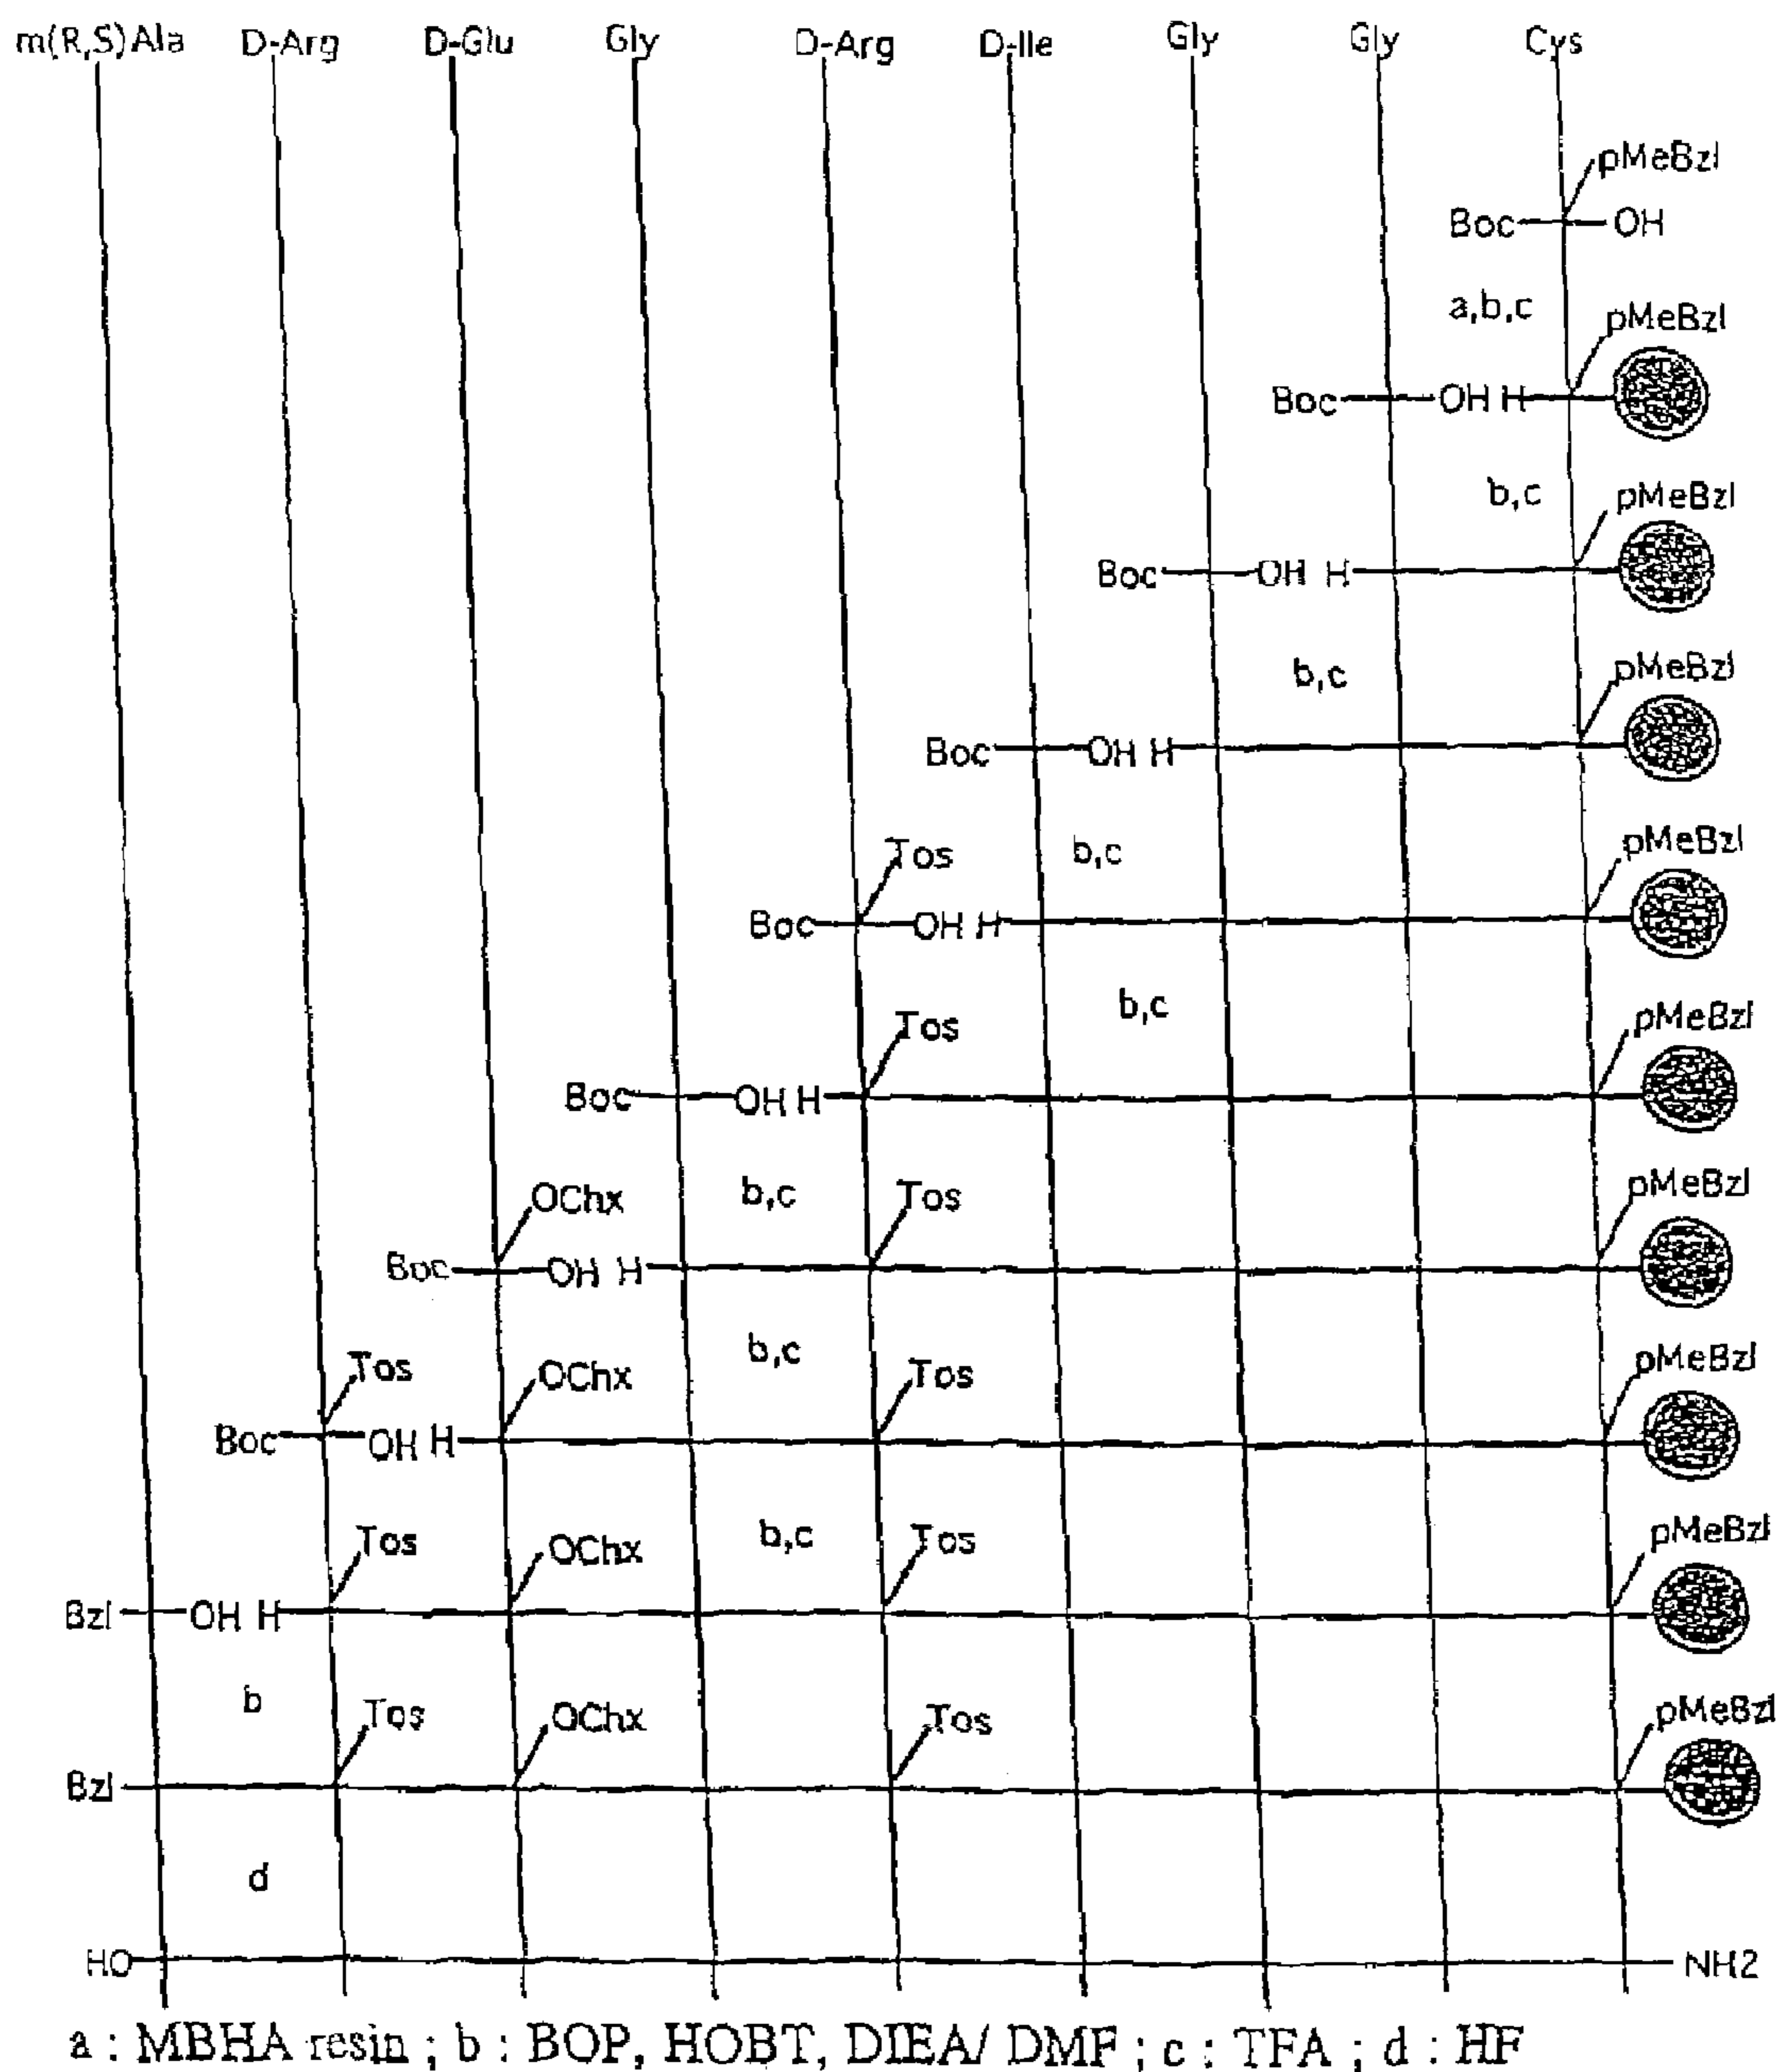 m(R,S)Ala D-Arg D-Glu Gly D-Arg D-Ile Gly Gly Cys
pMeBzl
Boc OH
a,b,c
pMeBzl
Boc OH H
b,c
pMeBzl
Boc OH H
b,c
pMeBzl
Boc OH H
Tos b,c pMeBzl
Boc OH H
b,c
Tos pMeBzl
Boc OH H
OChx b,c Tos pMeBzl
Boc OH H
b,c
Tos OChx Tos pMeBzl
Boc OH H
b,c
Tos OChx Tos pMeBzl
Bzl OH H
b
Tos OChx Tos pMeBzl
Bzl
d
HO NH2
a : MBHA resin ; b : BOP, HOBT, DIEA/ DMF ; c : TFA ; d : HF